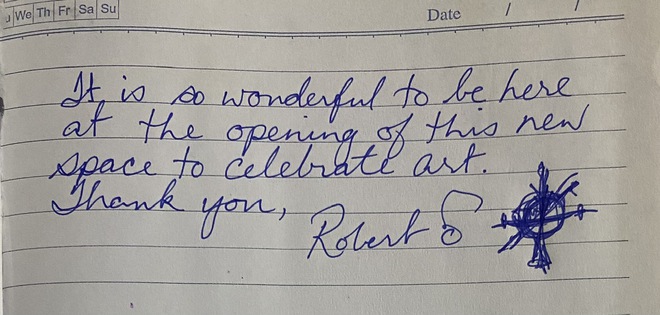 We Th Fr Sa Su
Date / /
It is so wonderful to be here
at the opening of this new
space to celebrate art.
Thank you,
Robert